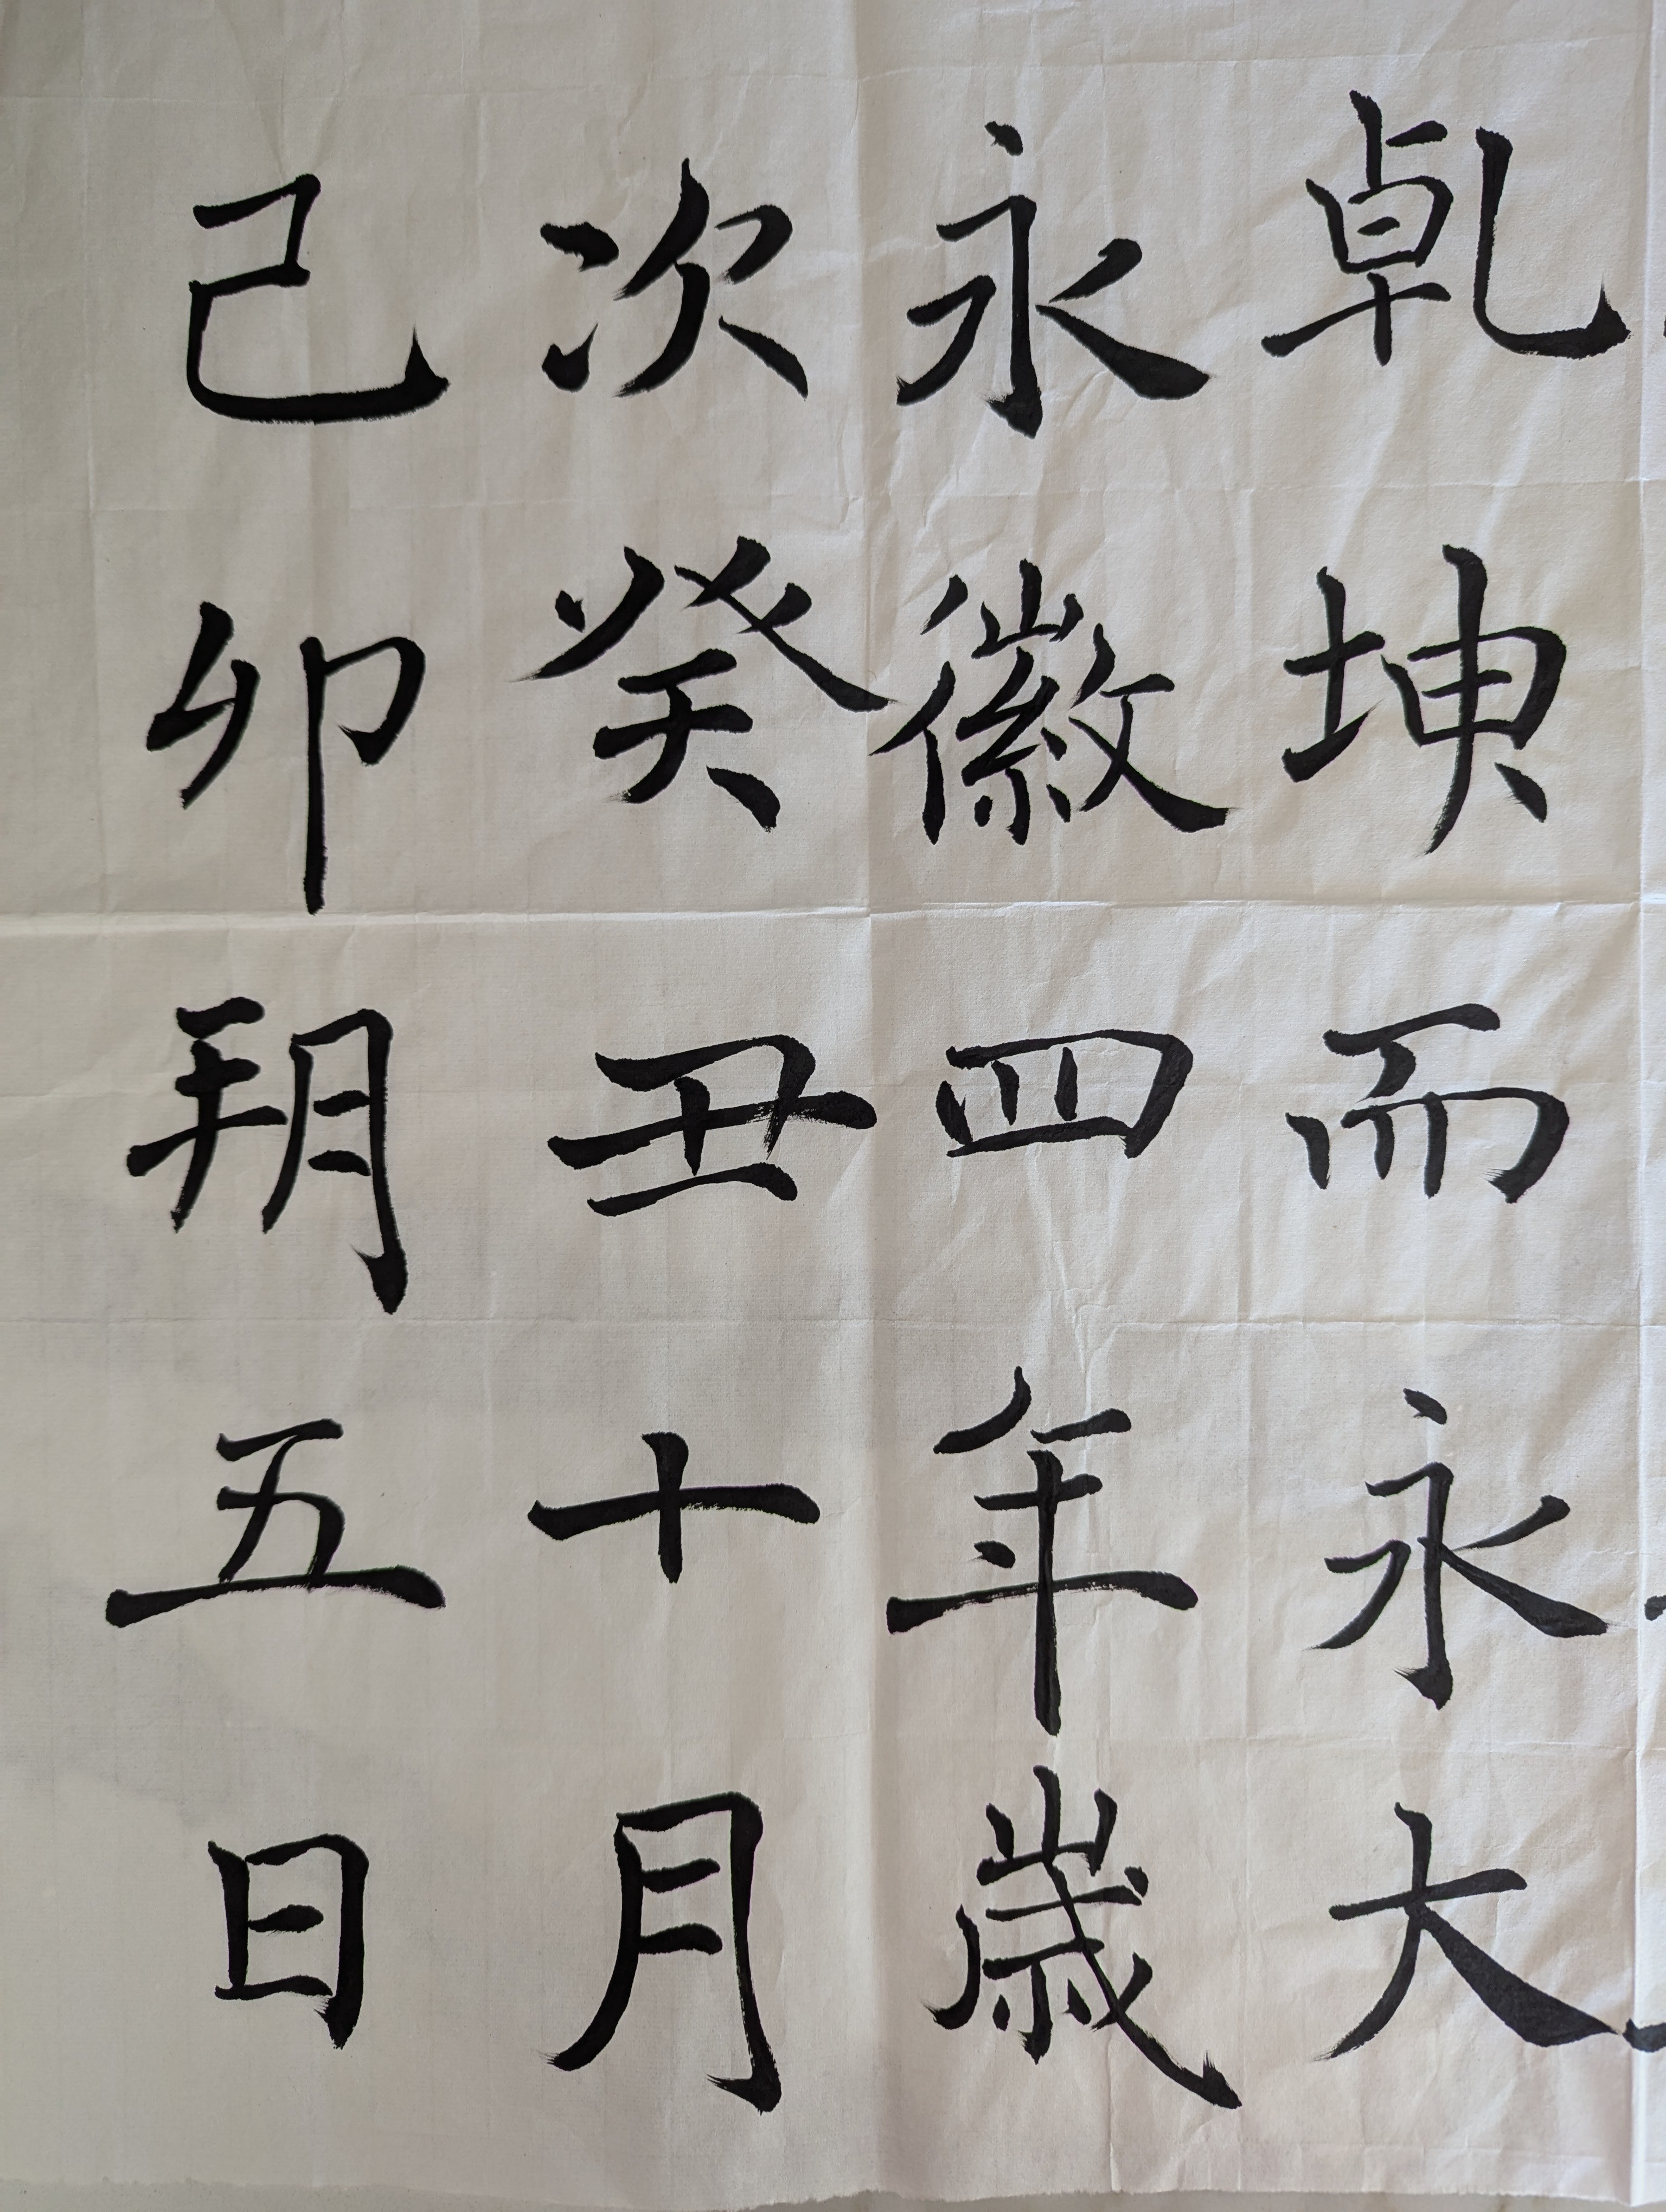 乹坤而永大
永徽四年歲
次癸丑十月
己卯朔五日